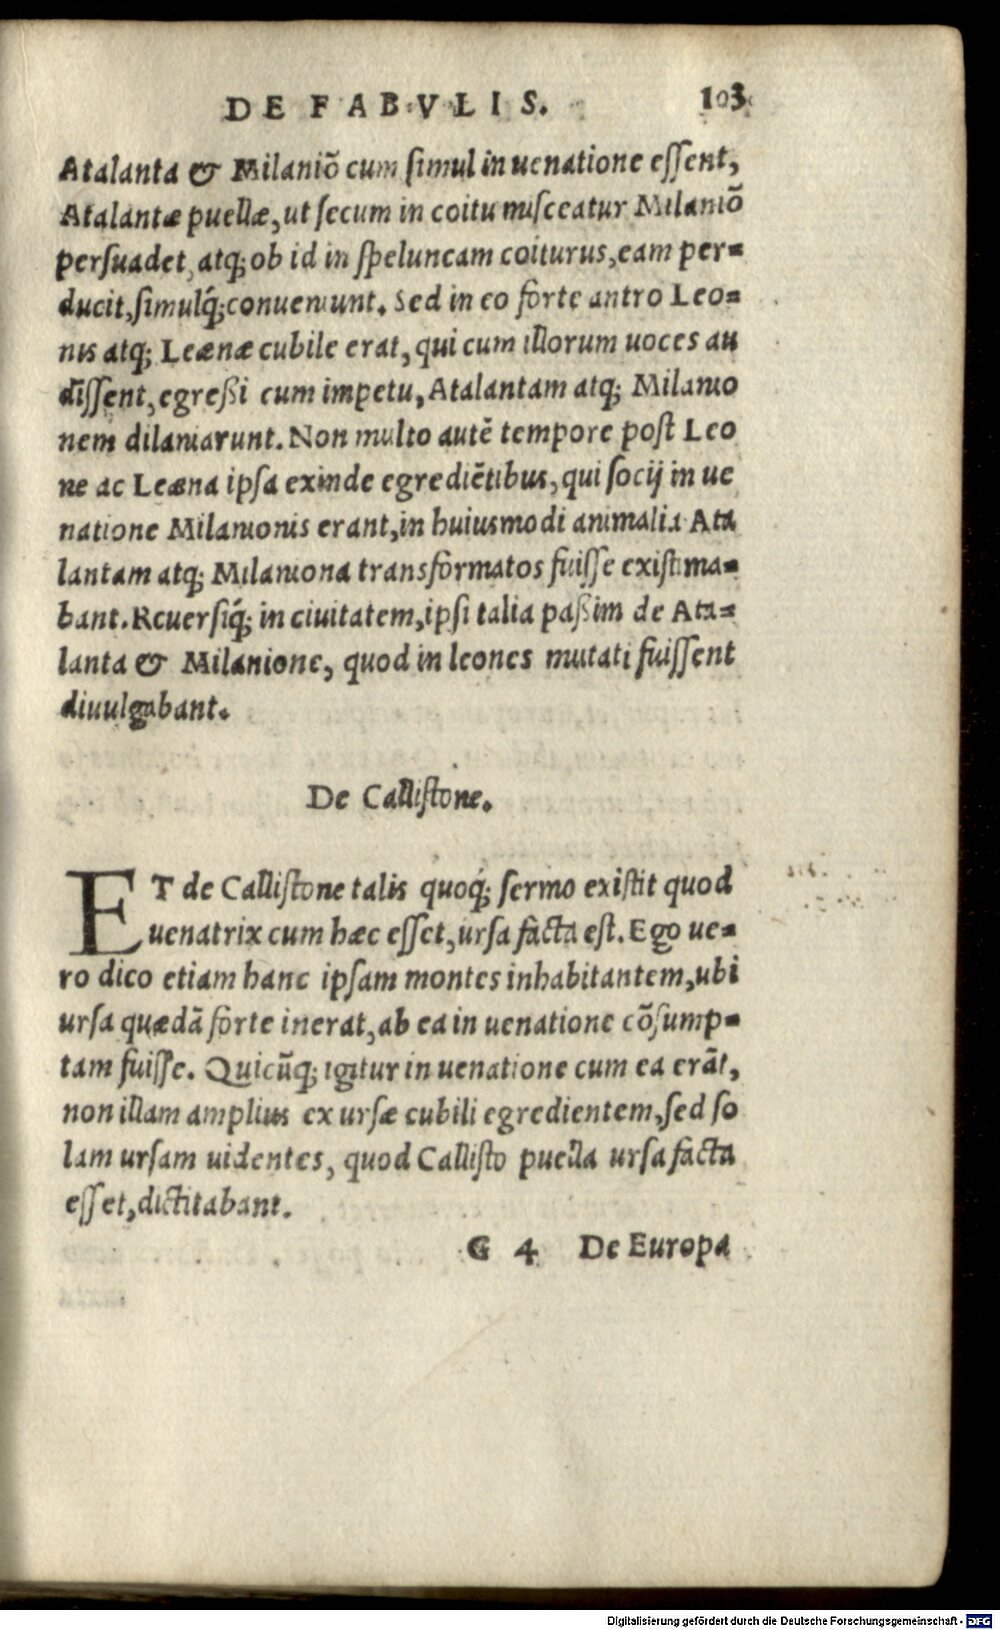 DE FABVLIS. 103
Atalanta & Milaniõ cum simul in uenatione essent,
Atalantæ puellæ, ut secum in coitu misceatur Milaniõ
persuadet, atq; ob id in speluncam coiturus, eam per=
ducit, simulq́; conueniunt. Sed in eo forte antro Leo=
nis atq; Leænæ cubile erat, qui cum illorum uoces au
dissent, egreßi cum impetu, Atalantam atq; Milanio
nem dilaniarunt. Non multo autẽ tempore post Leo
ne ac Leæna ipsa exinde egrediẽtibus, qui socij in ue
natione Milanionis erant, in huiusmodi animalia Ata
lantam atq; Milaniona transformatos fuisse existima=
bant. Reuersiq́; in ciuitatem, ipsi talia paßim de Ata=
lanta & Milanione, quod in leones mutati fuissent
diuulgabant.
De Callistone.
ET de Callistone talis quoq́; sermo existit quod
uenatrix cum hæc esset, ursa facta est. Ego ue=
ro dico etiam hanc ipsam montes inhabitantem, ubi
ursa quædã forte inerat, ab ea in uenatione cõsump=
tam fuisse. Quicũq; igitur in uenatione cum ea erãt,
non illam amplius ex ursæ cubili egredientem, sed so
lam ursam uidentes, quod Callisto puella ursa facta
esset, dictitabant.
G 4 De Europa
Digitalisierung gefördert durch die Deutsche Forschungsgemeinschaft - DFG